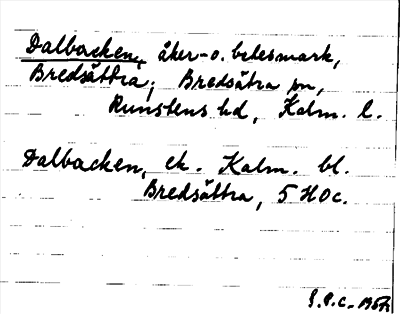 Dalbacken, åker- o. betesmark,
Bredsättra; Bredsätra sn,
Runstens hd, Kalm. l.
Dalbacken, ek. Kalm. bl.
Bredsättra, 5 H0c.